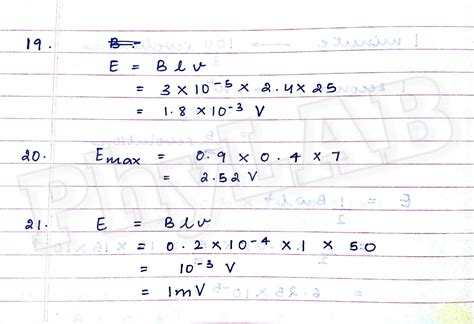 19. B
E = B l v
= 3 × 10⁻⁵ × 2.4 × 25
= 1.8 × 10⁻³ V
20. Emax = 0.9 × 0.4 × 7
= 2.52 V
21. E = B l v
= 0.2 × 10⁻⁴ × 1 × 50
= 10⁻³ V
= 1mV
PhyLAB